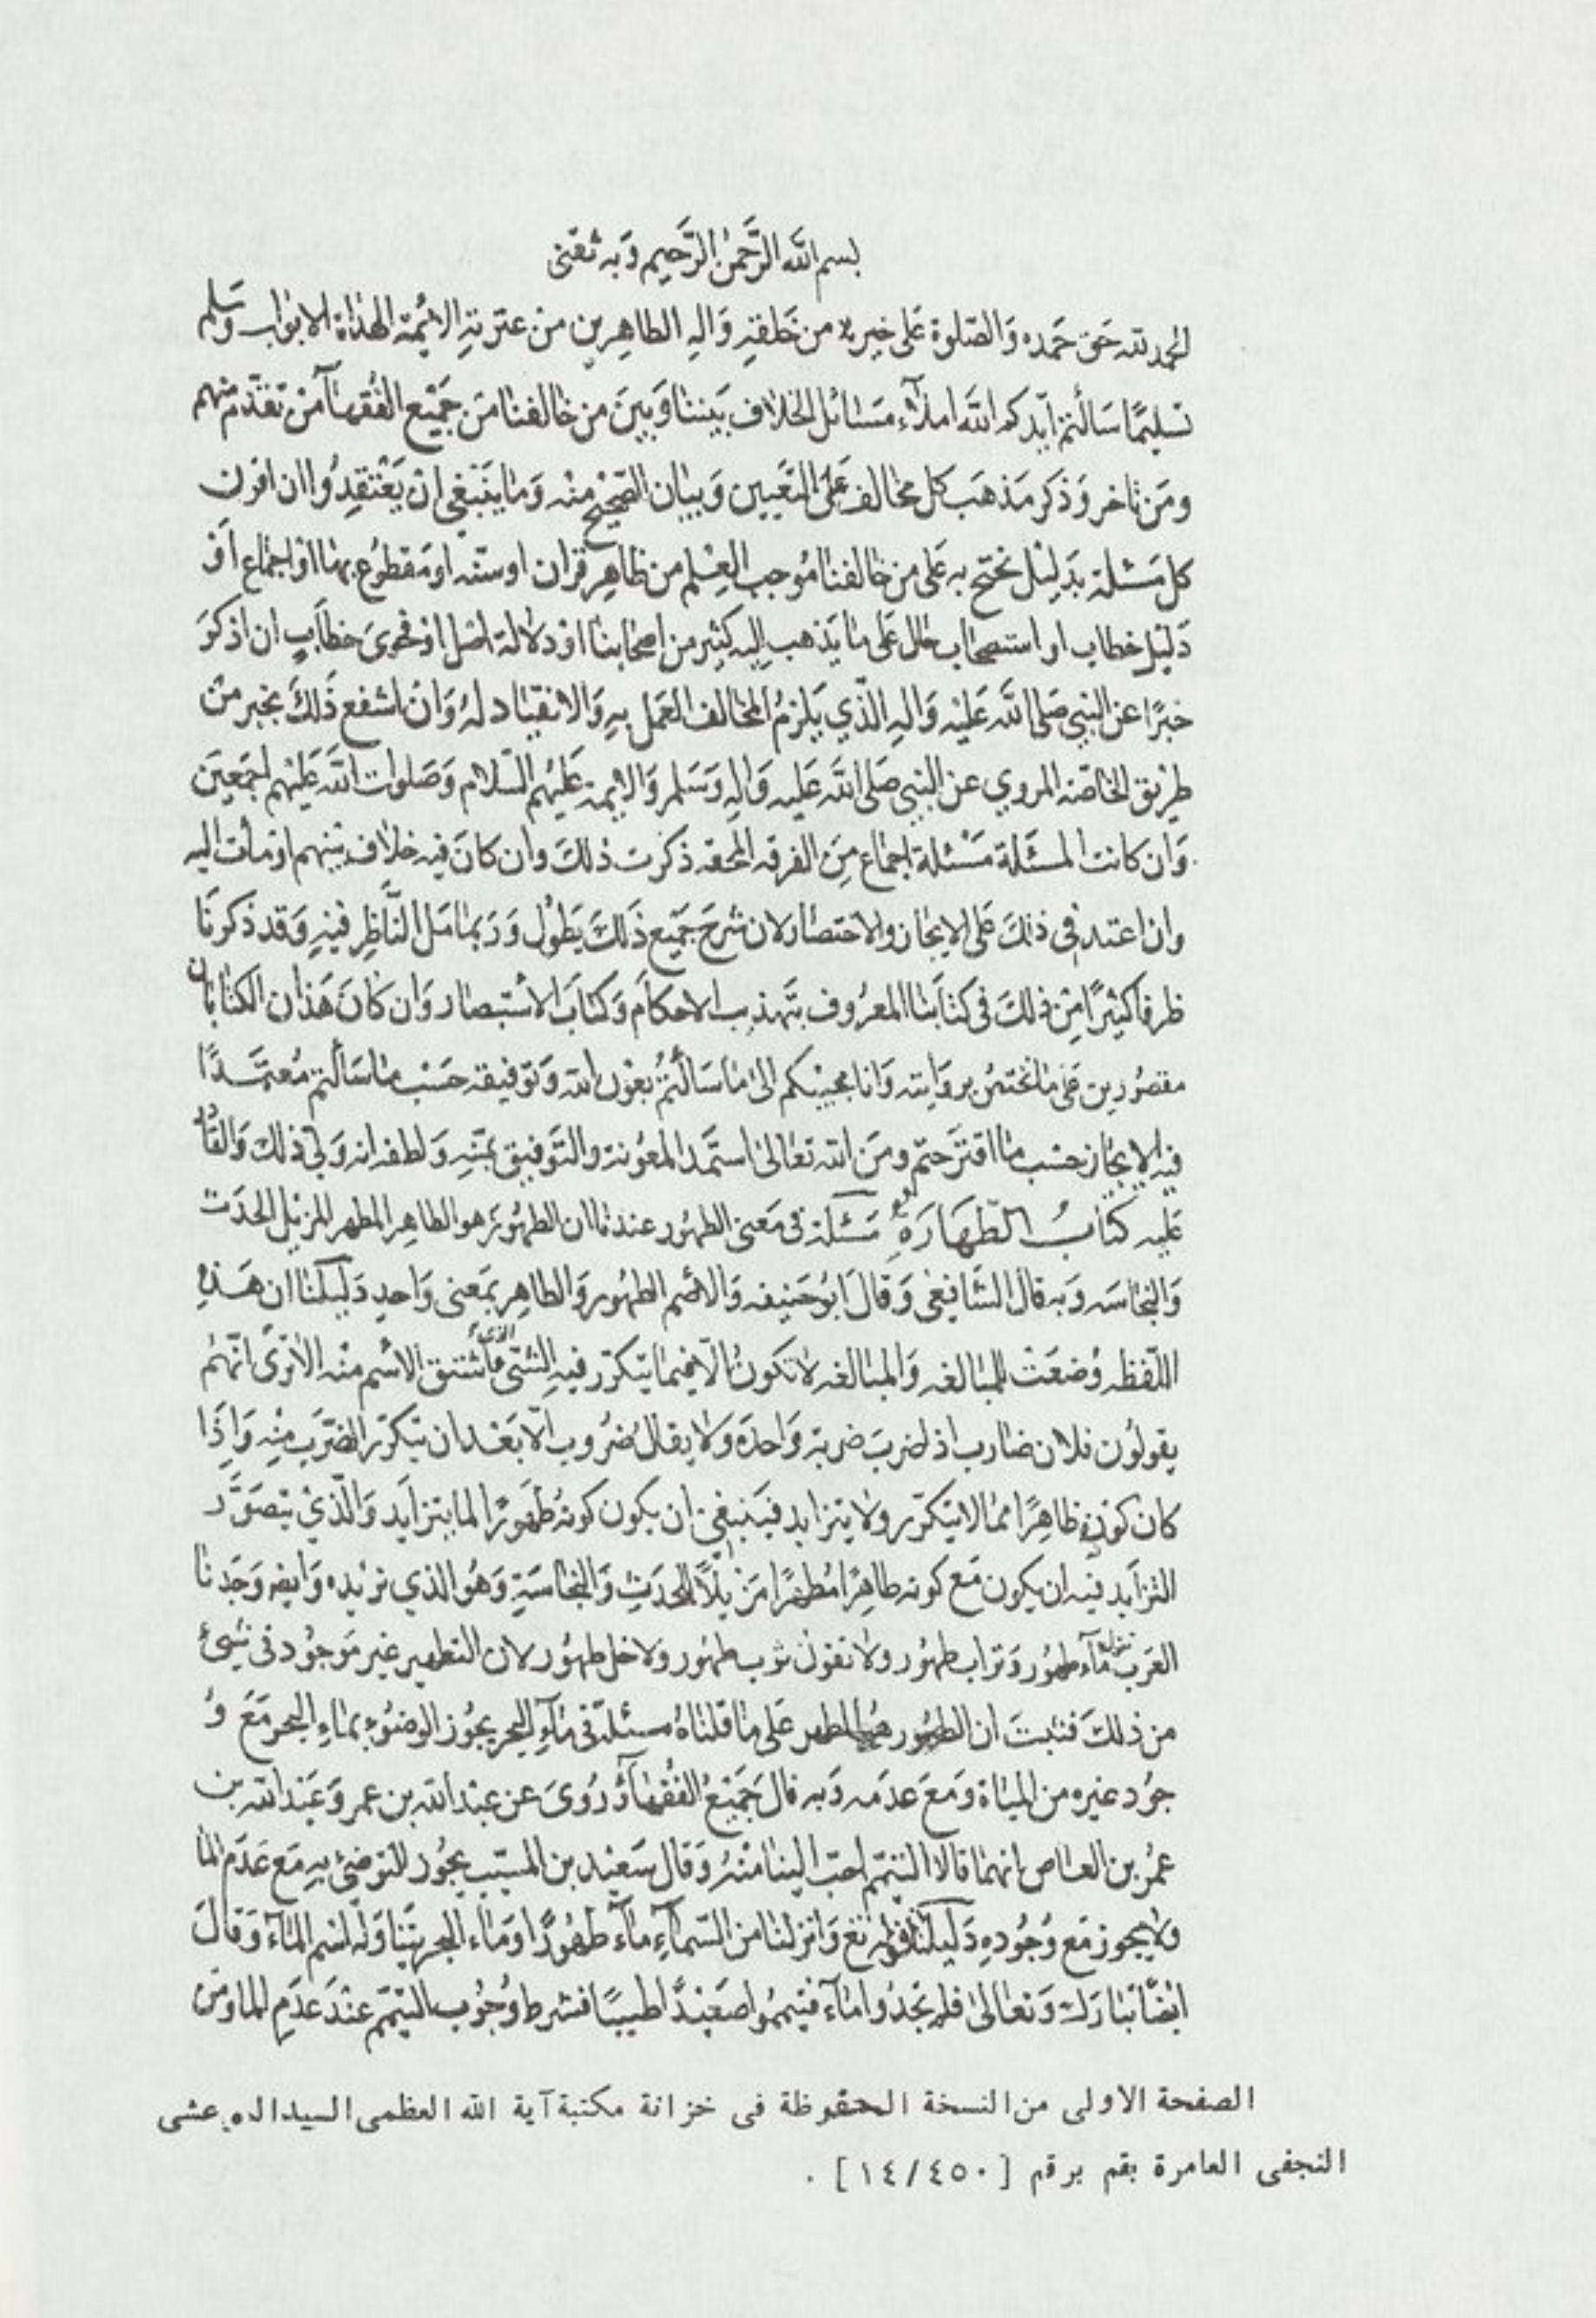 بسم الله الرَّحمن الرَّحيم وَبه ثقتى
الحمد لله حَق حَمده وَالصّلوة عَلى خيرته من خَلقهِ وَاله الطاهرين من عترتهِ الائِمّة الهُداة الابواب وسَلم
تسليمًا سَألتم ايّدكم الله املآء مسَائل الخلاف بَيننا وَبينَ من خالفنا من جَميْع الفُقهآ من تقدّم منهم
ومَن تاخر وَذكر مَذهبَ كل مخالف عَلى التعَيين وَبيان الصّحيْح منه وَما ينبَغي ان يَعْتقِدُوا ان اقرن
كل مَسْئلة بدَليْل نحتج به عَلى من خالفنا مُوجب العِلم من ظاهِر قران او سنّه او مَقطوُع بها او اجماع اَو
دَليْل خطاب او استصحاب حال على ما يَذهب اليه كثير من اصحابنا او دلالة اصْل او فحوىَ خطاب ان اذكرَ
خبرًا عن النبي صَلى الله عَليْه وَالهِ الّذي يَلزمُ المخالف العَمل بهِ وَالانقيَاد لهُ وَان اشفع ذلكَ بخبر من
طرْيق الخاصّه المروي عن النبي صَلى الله عَليه وَالهِ وَسَلم وَالائِمة عَليْهم السّلام وَصَلوات الله عَليْهم اجمَعينَ
وَان كانت المسئَلة مَسْئلة اجماع مِنَ الفرقه المحقه ذكرت ذلكَ وان كانَ فيه خلاف بَينهم اومأت اليه
وان اعتمد في ذلكَ عَلى الايجاز والاختصار لان شرحَ جَميْع ذَلكَ يَطوُل وَرَبما مَل النّاظِر فيْهِ وَقد ذكرنَا
طرفا كثيْرًا مِن ذلكَ في كتابنا المعرُوف بتَهذيب الاحكام وَكتابَ الاسْتبصار وَان كانَ هَذان الكتابان
مقصُورين عَلى ما نختصُ بروَايته وَانا مجيبْكم الى ما سَألتُمْ بعَوْن الله وَتوَفيقه حَسْب ما سَألتم مُعتمَدًا
فيه الايجاز حسْب ما اقترَحتم ومنَ الله تعَالى استمَد المعوُنة والتَوفيق بمنّهِ وَلطفه انه وَلي ذلك وَالقادر
عَليه كتابُ الطّهَارَةِ مَسْئلة فى مَعنى الطهُور عندنا ان الطهُور هو الطاهِر المطهر المزيل الحدَث
وَالنجاسَه وَبه قالَ الشّافِعى وَقالَ ابوُحنيفه وَالاصْم الطهُور وَالطاهِر بمَعنى وَاحدٍ دَليْلنا ان هَذهِ
اللّفظه وُضعَتْ للمبالغه وَالمبالغه لا تكونُ الّا فيما يتكرّر فيهِ الشئ الذى ما شتق الاسْم منْه الا ترَىَ انّهُم
يقولوُن فلان ضارب اذا ضربَ ضربة وَاحدَه وَلا يقال ضُرُوب الّا بَعْد ان يتكرّر الضرَب منْه وَاذَا
كان كوُنه طاهِرًا مما لا يتكرّر ولا يتزايد فيَنبغي ان يكون كونهُ طهُورًا لما يتزايَد وَالّذيْ يتصَوَّر
التزايَد فيْه ان يكون مَع كونه طاهِرًا مُطهرًا مزَيلًا للحَدَثِ وَالنجاسَةِ وَهوُ الذي نريْده وَايضه وَجَدنا
العَرب تقوُل مآء طهُور وَتراب طهوُر ولا تقول ثوب طهوُر ولا خل طهُور لان التطهير غير مَوجوُد فى شيئ
من ذلكَ فثبتَ ان الطهُور هُو المطهر عَلى ما قلناهُ مسئلة فى مآءِ البحر يجوُز الوضوُء بماءِ البحر مَعَ وُ
جوُد غيره من المياة وَمَعَ عدَمه وَبه قال جَميَعُ الفُقهآء وَرُوىَ عن عبْدالله بن عمر وَعَبْدالله بن
عمرُ بن العاص انهما قالا التيَمّم احبّ الينا منْهُ وَقال سَعيْد بن المسَيّب يجُوز للتوَضئ بهِ مَع عَدَم الما
ولا يجوز مَع وُجُودهِ دَليْلنا قوله تع وَانزلنا من السّمآءِ مآء طهُورًا وَماء البحر يتَناوَله اسْم المآء وَقالَ
ايضًا تبارَك وَتعالى فلم تجدُوا مآء فتيمموُا صَعيْدًا طيبًا فشرط وُجوُب التيَمّم عنْدَ عدَم الما ومَن
الصفحة الاولى من النسخة المحفوظة فى خزانة مكتبة آية الله العظمى السيد المرعشى
النجفى العامرة بقم برقم [١٤/٤٥٠] .